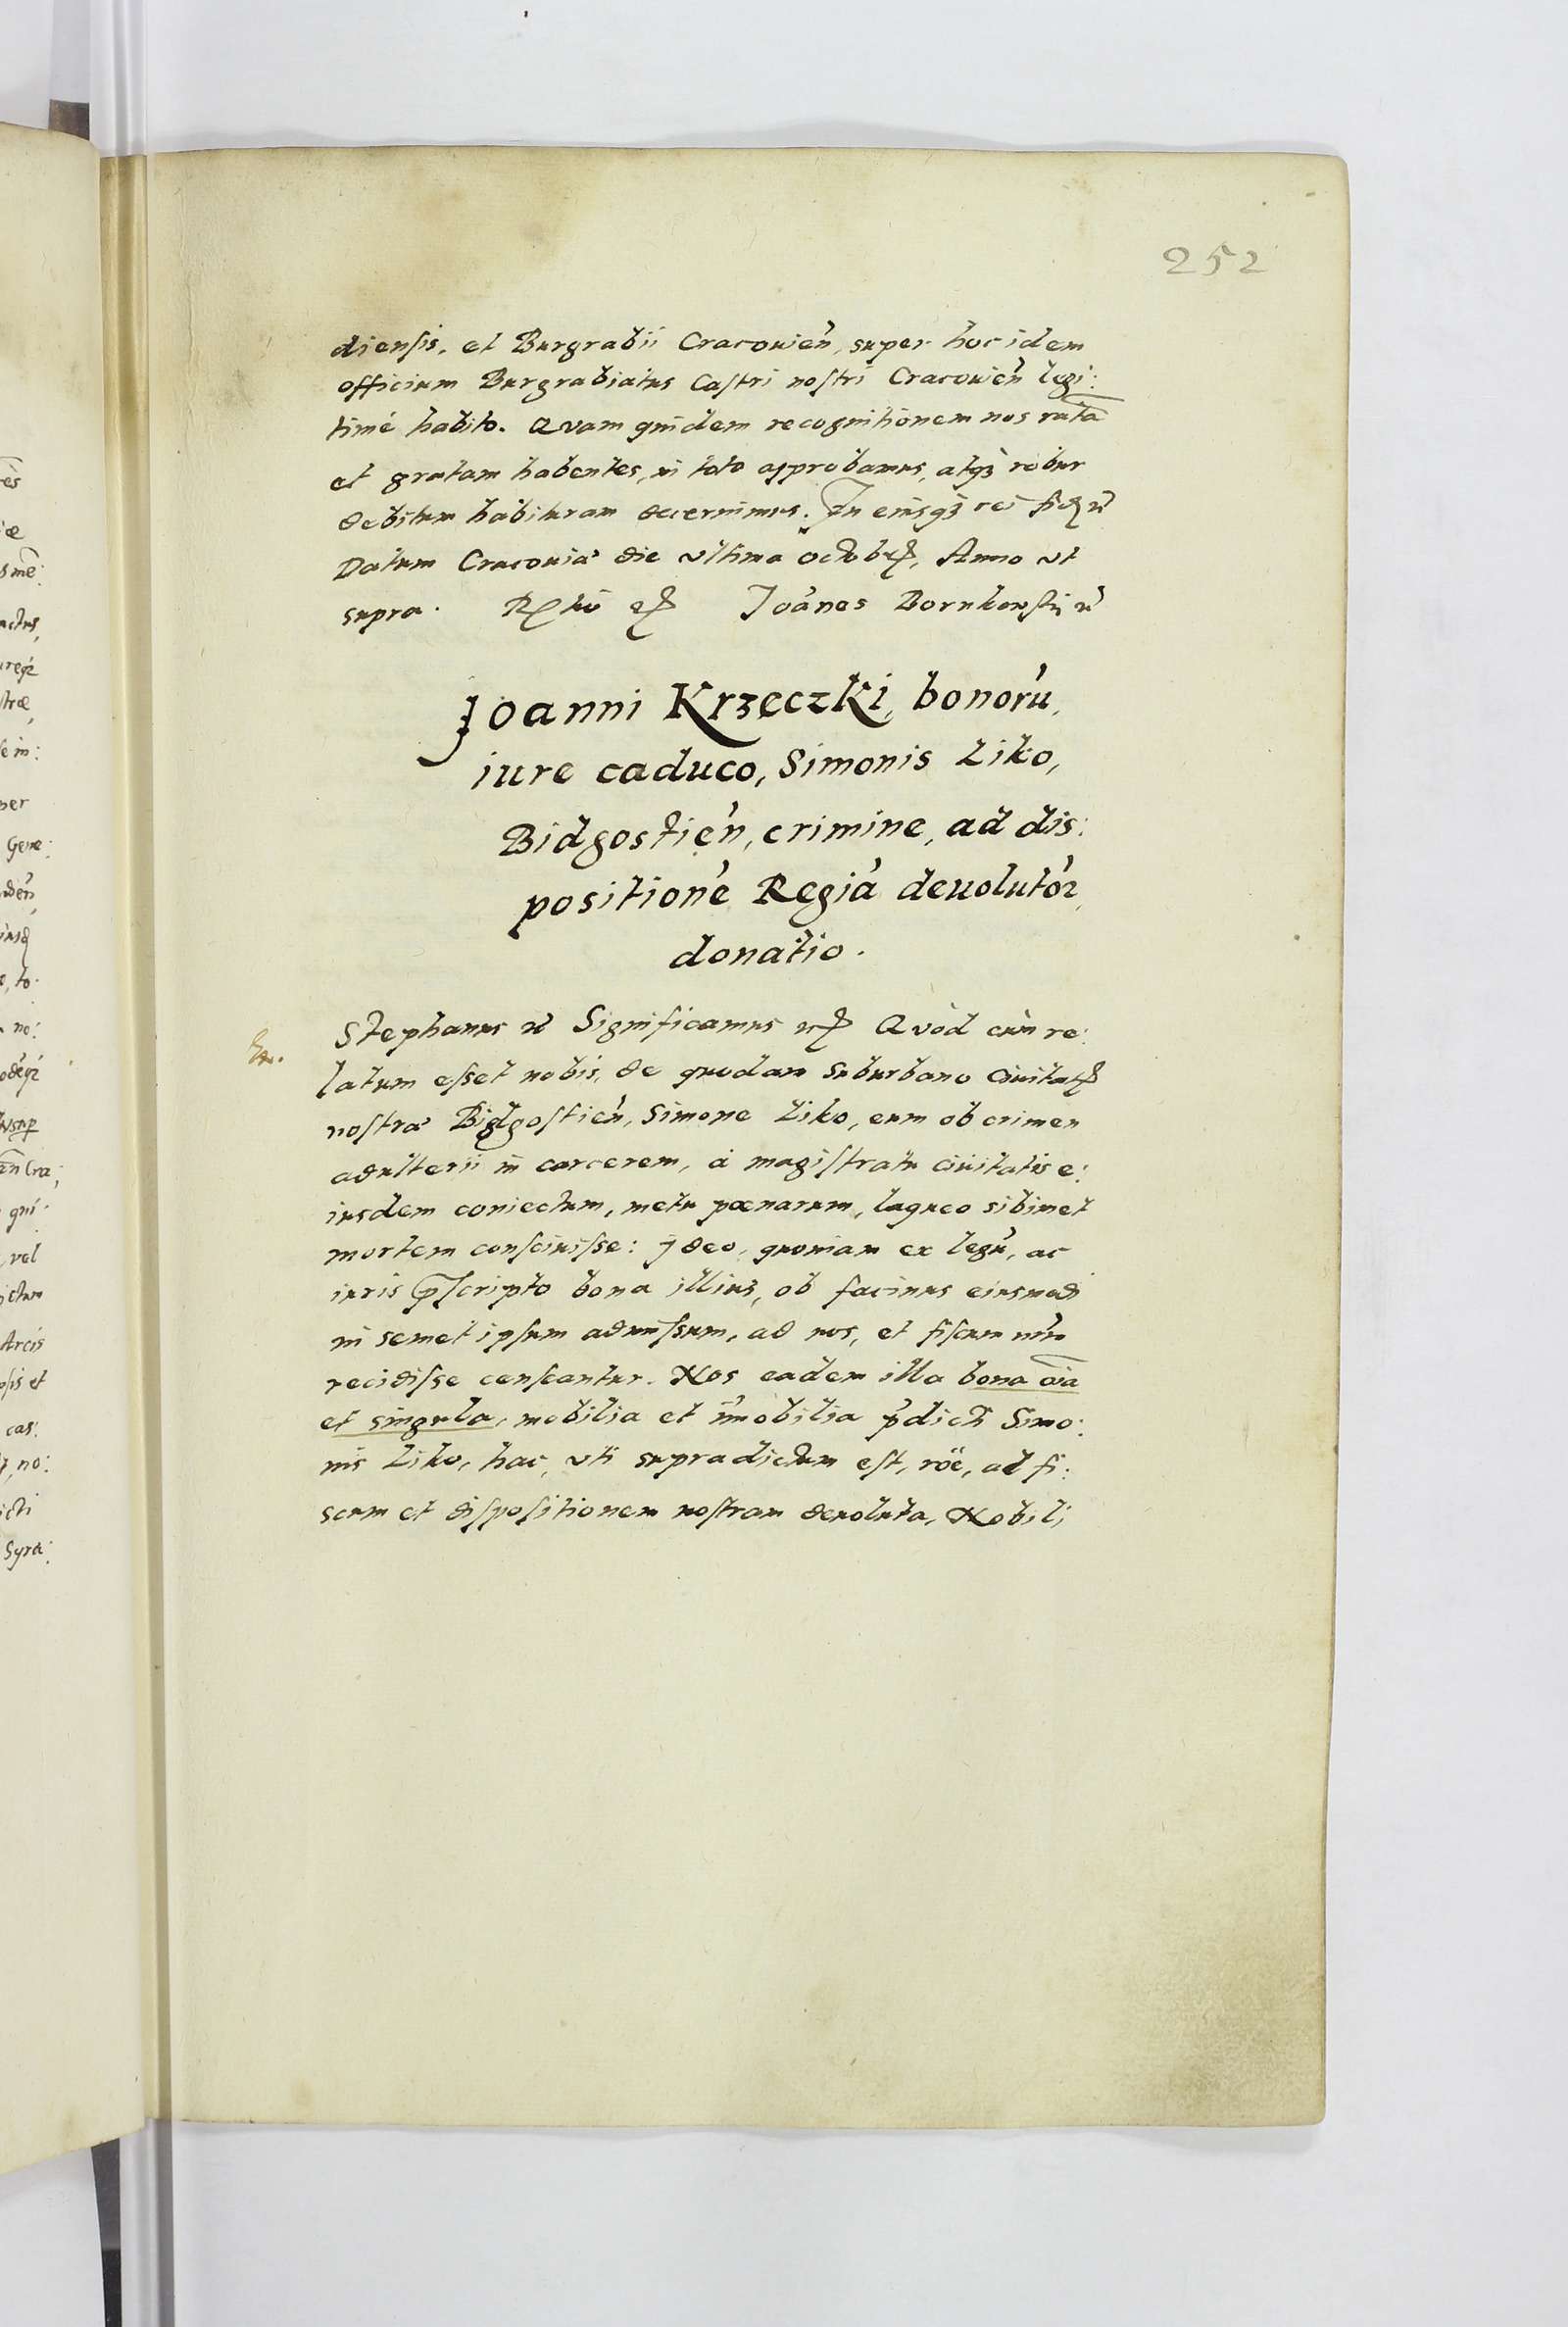 252
diensis, et Burgrabii Cracouien̄, super hoc idem
officium Burgrabiatus Castri nostri Cracouien̄ legi:
timè habito. Quam quidem recognitionem nos ratā
et gratam habentes, in toto approbamus, atqꝫ robur
debitum habituram decernimus. In eiusqꝫ rei fidē
Datum Cracouiæ die vltima octobrꝭ, Anno vt
supra. Joānes Bornkowski
Joanni Krzeczki, bonorū,
iure caduco, Simonis Liko,
Bidgostien̄, crimine, ad dis:
positionē Regiā deuolutoꝝ,
donatio.
Stephanus Significamus Quòd cùm re:
latum esset nobis, de quodam suburbano ciuitatꝭ
nostræ Bidgostien̄, Simone Liko, eum ob crimen
adulterii in carcerem, à magistratu ciuitatis e:
iusdem coniectum, metu pœnarum, laqueo sibimet
mortem consciuisse: ideo, quoniam ex legū, ac
iuris p̄scripto bona illius, ob facinus eiusmodi
in semet ipsum admissum, ad nos, et fiscum nr̄m
recidisse censeantur. Nos eadem illa bona oīa
et singula, mobilia et im̄obilia p̄dicti Simo:
nis Liko, hac, vti supradictum est, rōe, ad fi:
scum et dispositionem nostram deuoluta, Nobili